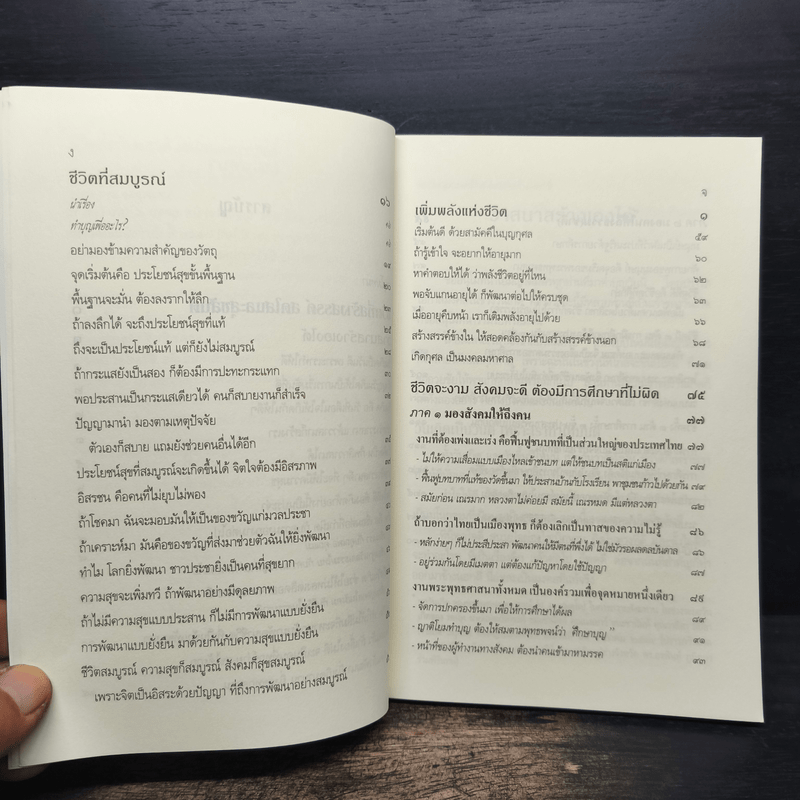 ง
ชีวิตที่สมบูรณ์ ๑๖
นำเรื่อง
ทำบุญเพื่ออะไร?
อย่ามองข้ามความสำคัญของวัตถุ
จุดเริ่มต้นคือ ประโยชน์สุขขั้นพื้นฐาน ๑๙
พื้นฐานจะมั่น ต้องลงรากให้ลึก ๒๐
ถ้าลงลึกได้ จะถึงประโยชน์สุขที่แท้
ถึงจะเป็นประโยชน์แท้ แต่ก็ยังไม่สมบูรณ์
ถ้ากระแสยังเป็นสอง ก็ต้องมีการปะทะกระแทก
พอประสานเป็นกระแสเดียวได้ คนก็สบายงานก็สำเร็จ
ปัญญามานำ มองตามเหตุปัจจัย
ตัวเองก็สบาย แถมยังช่วยคนอื่นได้อีก
ประโยชน์สุขที่สมบูรณ์จะเกิดขึ้นได้ จิตใจต้องมีอิสรภาพ
อิสรชน คือคนที่ไม่ยุบไม่พอง
ถ้าโชคมา ฉันจะมอบมันให้เป็นของขวัญแก่มวลประชา
ถ้าเคราะห์มา มันคือของขวัญที่ส่งมาช่วยตัวฉันให้ยิ่งพัฒนา
ทำไม โลกยิ่งพัฒนา ชาวประชายิ่งเป็นคนที่สุขยาก
ความสุขจะเพิ่มทวี ถ้าพัฒนาอย่างมีดุลยภาพ
ถ้าไม่มีความสุขแบบประสาน ก็ไม่มีการพัฒนาแบบยั่งยืน
การพัฒนาแบบยั่งยืน มาด้วยกันกับความสุขแบบยั่งยืน
ชีวิตสมบูรณ์ ความสุขก็สมบูรณ์ สังคมก็สุขสมบูรณ์
เพราะจิตเป็นอิสระด้วยปัญญา ที่ถึงการพัฒนาอย่างสมบูรณ์
จ
เพิ่มพลังแห่งชีวิต ๑
เริ่มต้นดี ด้วยสามัคคีในบุญกุศล ๕๙
ถ้ารู้เข้าใจ จะอยากให้อายุมาก ๖๐
หาคำตอบให้ได้ ว่าพลังชีวิตอยู่ที่ไหน ๖๒
พอจับแกนอายุได้ ก็พัฒนาต่อไปให้ครบชุด ๖๓
เมื่ออายุคืบหน้า เราก็เติมพลังอายุไปด้วย ๖๖
สร้างสรรค์ข้างใน ให้สอดคล้องกันกับสร้างสรรค์ข้างนอก ๖๘
เกิดกุศล เป็นมงคลมหาศาล ๗๑
ชีวิตจะงาม สังคมจะดี ต้องมีการศึกษาที่ไม่ผิด ๗๕
ภาค ๑ มองสังคมให้ถึงคน ๗๗
งานที่ต้องเพ่งและเร่ง คือฟื้นฟูชนบทที่เป็นส่วนใหญ่ของประเทศไทย ๗๗
- ไม่ให้ความเสื่อมแบบเมืองไหลเข้าชนบท แต่ให้ชนบทเป็นสติแก่เมือง ๗๗
- ฟื้นฟูบทบาทที่แท้ของวัดขึ้นมา ให้ประสานบ้านกับโรงเรียน พาชุมชนก้าวไปด้วยกัน ๗๙
- สมัยก่อน เณรมาก หลวงตาไม่ค่อยมี สมัยนี้ เณรหมด มีแต่หลวงตา ๘๒
ถ้าบอกว่าไทยเป็นเมืองพุทธ ก็ต้องเลิกเป็นทาสของความไม่รู้ ๘๖
- หลักง่ายๆ ก็ไม่ประสีประสา พัฒนาคนให้มีตนที่พึ่งได้ ไม่ใช่มัวรอผลดลบันดาล ๘๖
- อยู่ร่วมกันโดยมีเมตตา แต่ต้องแก้ปัญหาโดยใช้ปัญญา ๘๗
งานพระพุทธศาสนาทั้งหมด เป็นองค์รวมเพื่อจุดหมายหนึ่งเดียว ๘๙
- จัดการปกครองขึ้นมา เพื่อให้การศึกษาได้ผล ๘๙
- ญาติโยมทำบุญ ต้องให้สมตามพุทธพจน์ว่า "ศึกษาบุญ" ๙๑
- หน้าที่ของผู้ทำงานทางสังคม ต้องนำคนเข้ามาหามรรค ๙๓